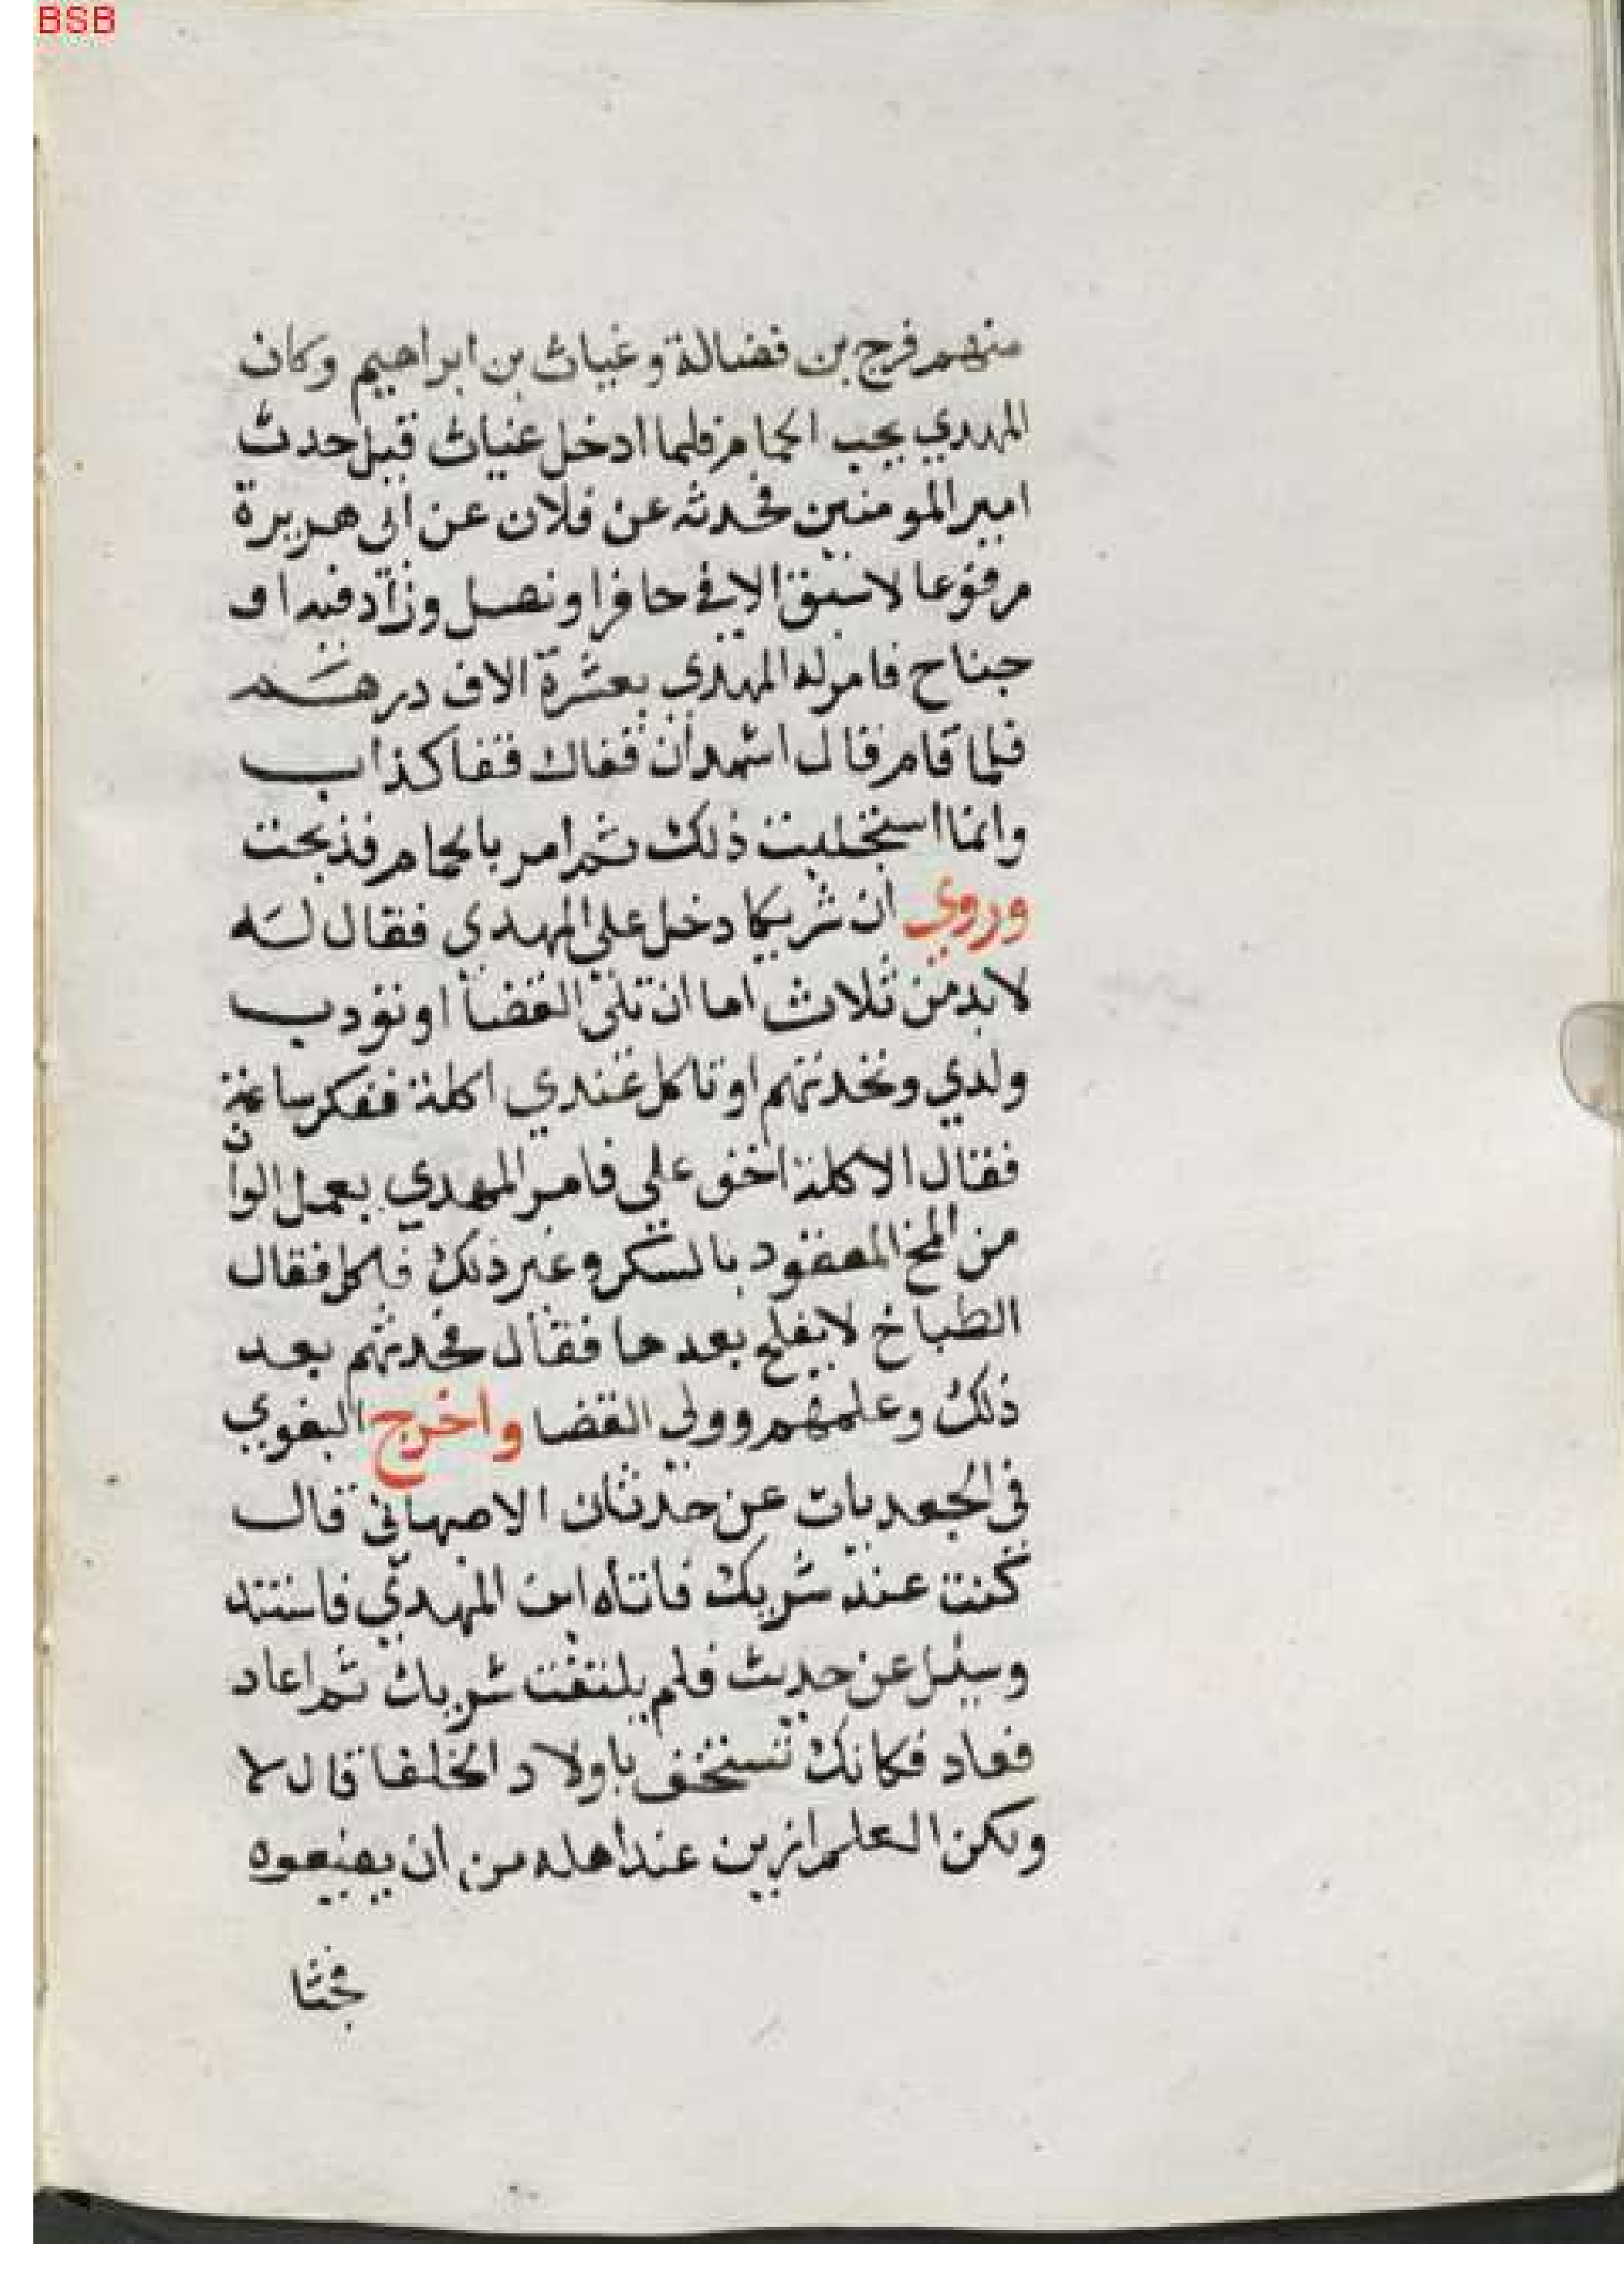 BSB
منهم فرج بن فضالة وغياث بن ابراهيم وكان
المهدي يحب الحمام فلما ادخل غياث قيل حدث
امير المومنين فحدثه عن فلان عن ابي هريرة
مرفوعا لا سبق الا في حافر او نصل وزاد فيه او
جناح فامر له المهدي بعشرة الاف درهم
فلما قام قال اشهد ان قفاك قفا كذاب
وانما استجلبت ذلك ثم امر بالحمام فذبحت
وروي ان شريكا دخل على المهدي فقال له
لا بد من ثلاث اما ان تلي القضا او تودب
ولدي وتحدثهم او تاكل عندي اكلة ففكر ساعة
فقال الاكلة اخف علي فامر المهدي بعمل الوان
من المخ المعقود بالسكر وغير ذلك فاكل فقال
الطباخ لا يفلح بعدها فقال فحدثهم بعد
ذلك وعلمهم وولي القضا واخرج البغوي
في الجعديات عن حدثان الاصبهاني قال
كنت عند شريك فاتاه ابن المهدي فاستند
وسئل عن حديث فلم يلتفت شريك ثم اعاد
فعاد فكانك تستخف باولاد الخلفا قال لا
ولكن العلم ازين عند اهله من ان يضيعوه
فجثا